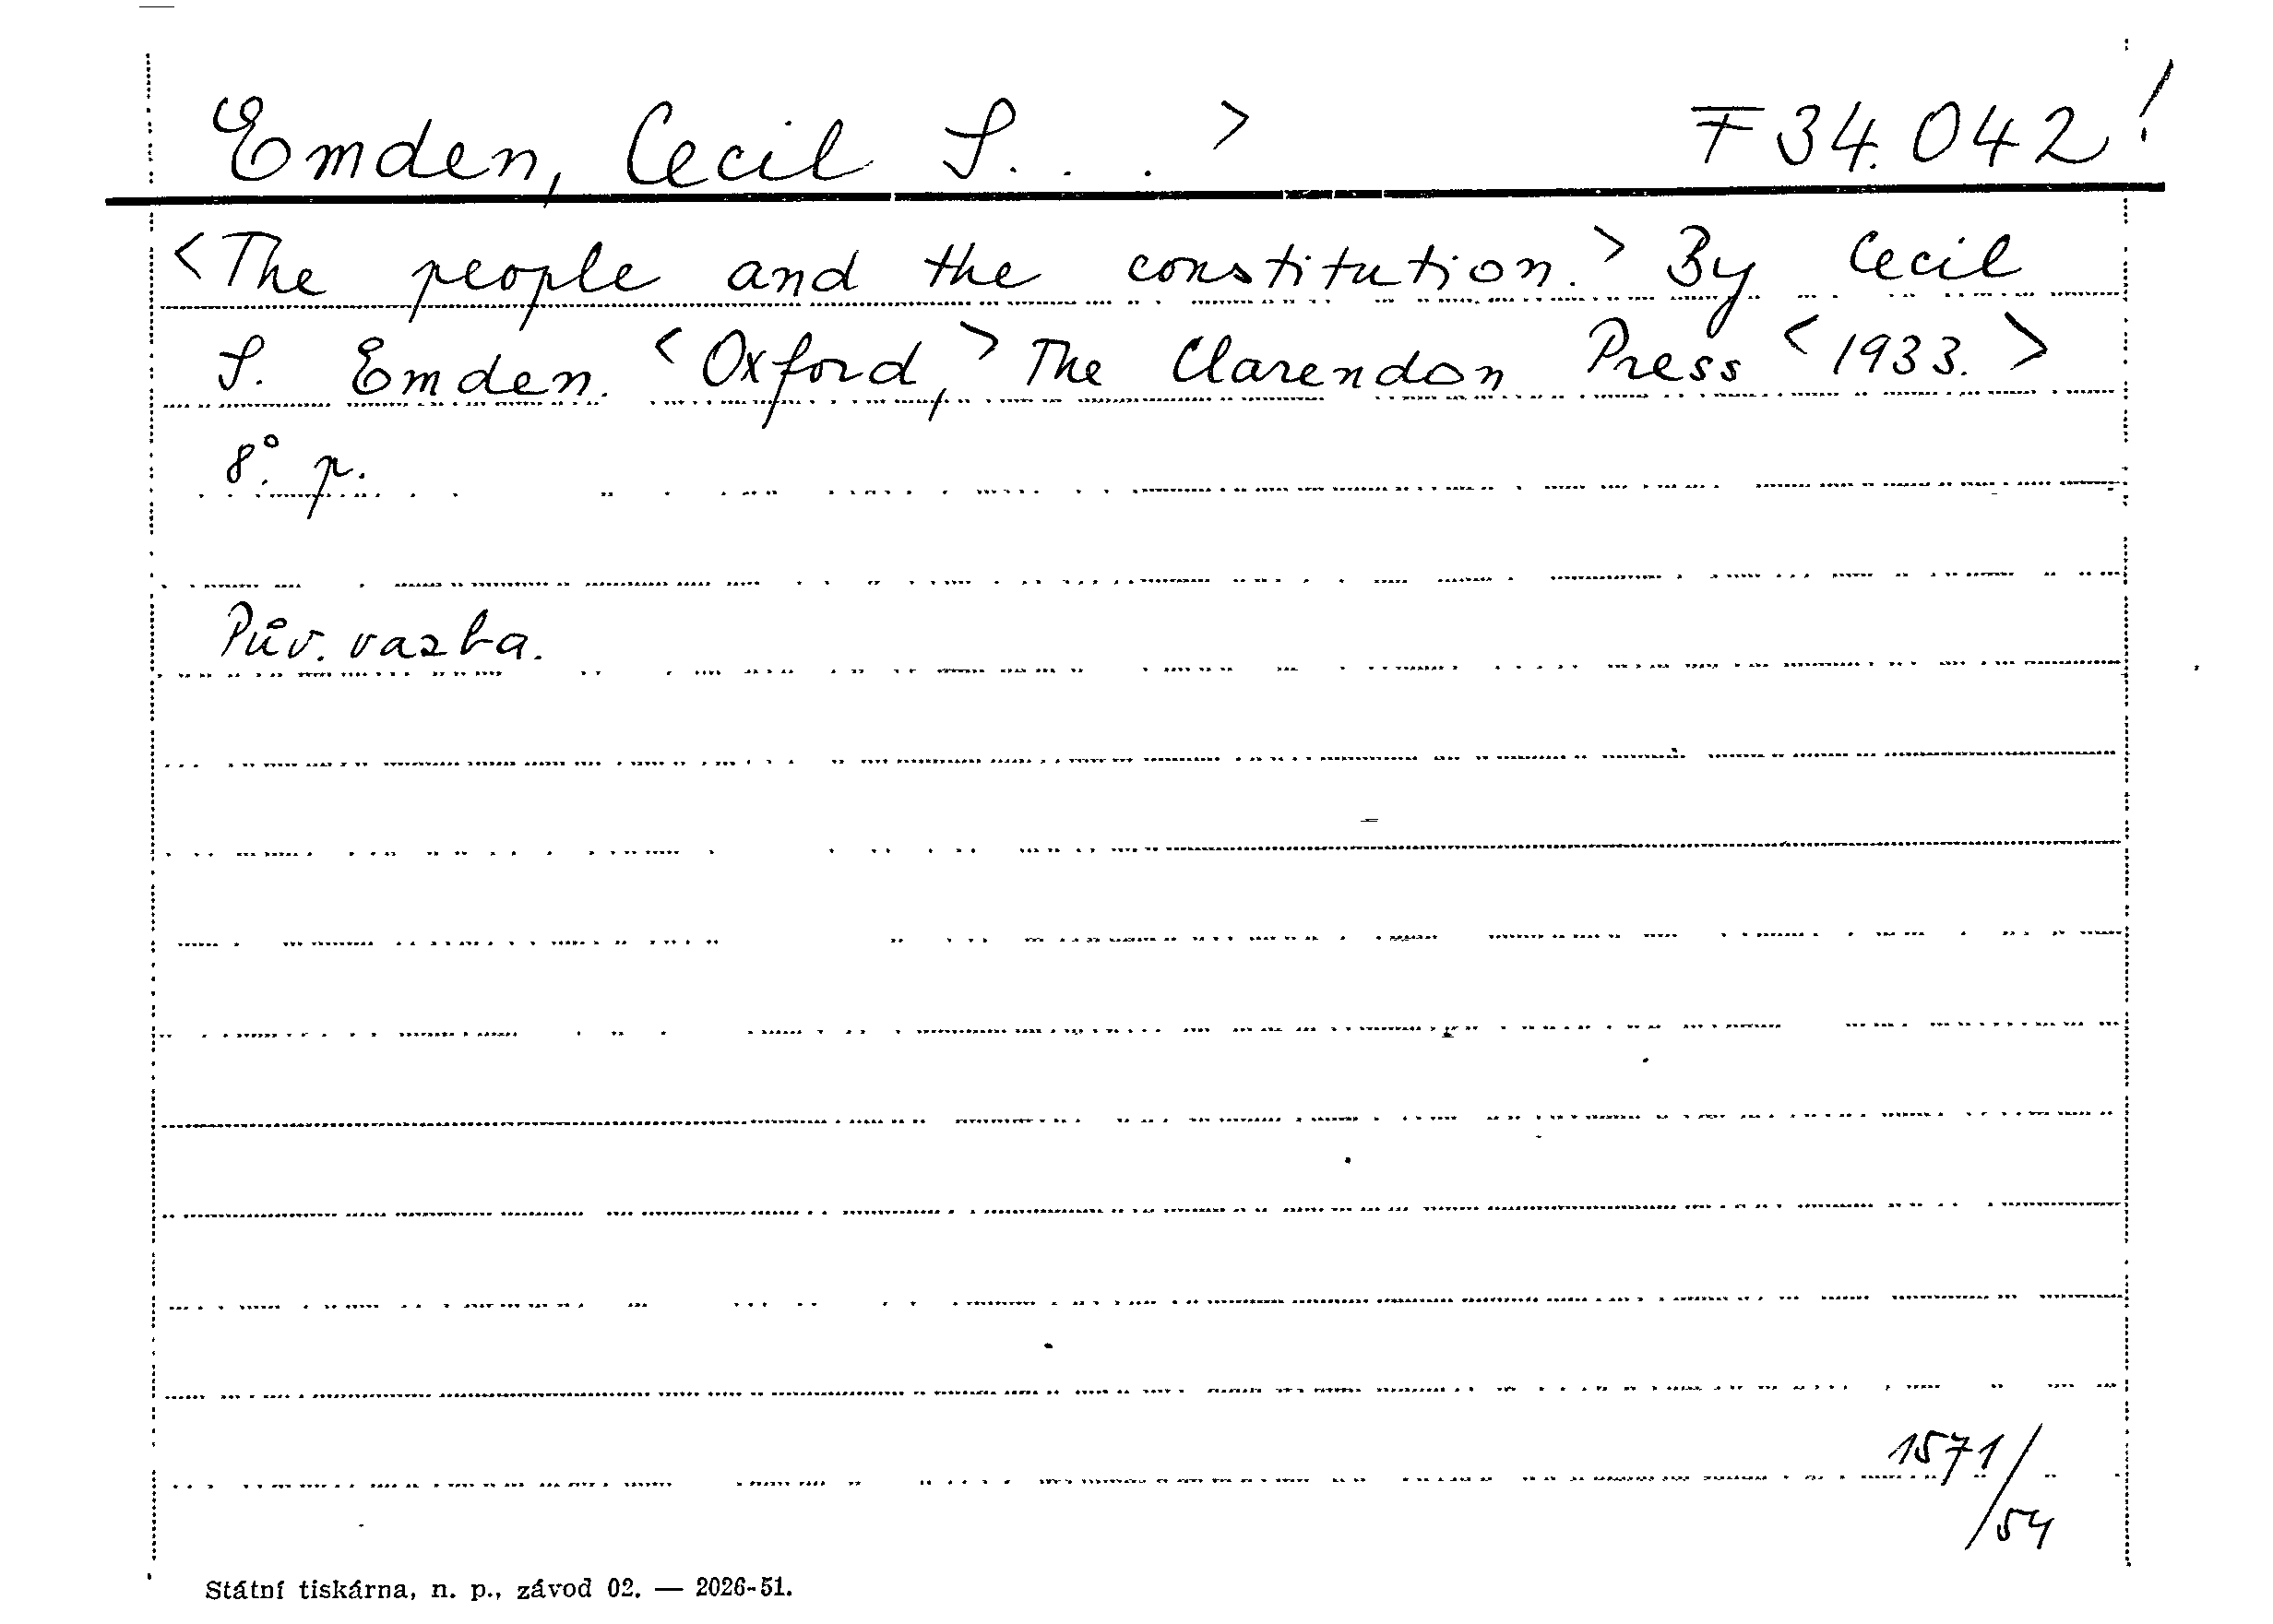 Emden, Cecil S. . . > F 34.042!
<The people and the constitution.> By Cecil
S. Emden. <Oxford,> The Clarendon Press <1933.>
8°. p.
Pův. vazba.
1571/
/54
Státní tiskárna, n. p., závod 02. — 2026-51.